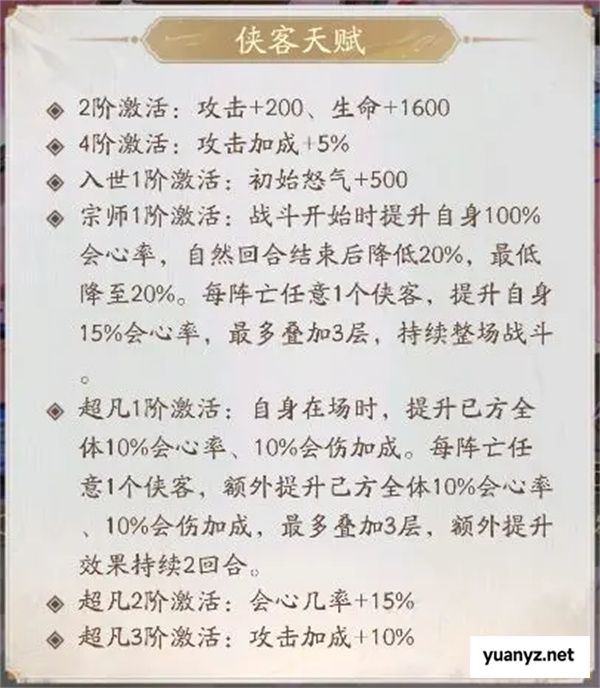 侠客天赋
2阶激活：攻击+200、生命+1600
4阶激活：攻击加成+5%
入世1阶激活：初始怒气+500
宗师1阶激活：战斗开始时提升自身100%
会心率，自然回合结束后降低20%，最低
降至20%。每阵亡任意1个侠客，提升自身
15%会心率，最多叠加3层，持续整场战斗
。
超凡1阶激活：自身在场时，提升己方全
体10%会心率、10%会伤加成。每阵亡任
意1个侠客，额外提升己方全体10%会心率
、10%会伤加成，最多叠加3层，额外提升
效果持续2回合。
超凡2阶激活：会心几率+15%
超凡3阶激活：攻击加成+10%
yuanyz.net